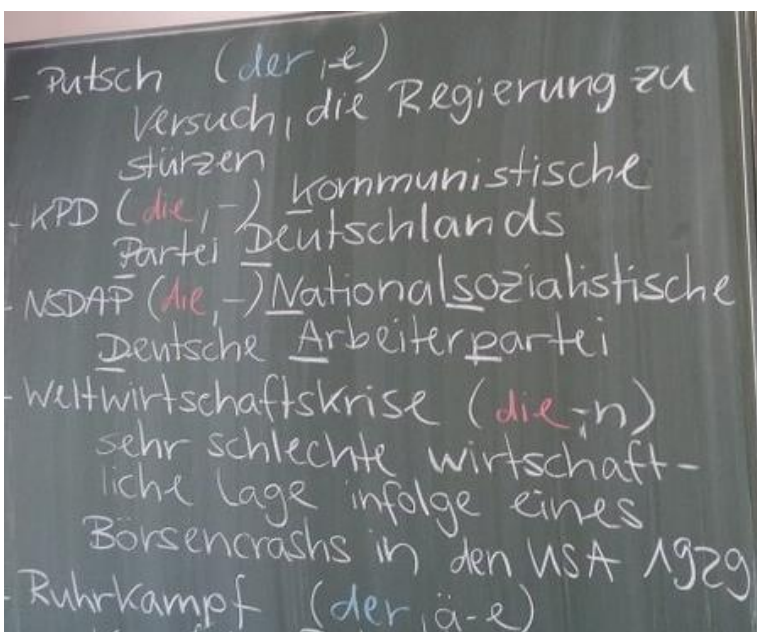 - Putsch (der, -e)
Versuch, die Regierung zu
stürzen
- KPD (die, -) Kommunistische
Partei Deutschlands
- NSDAP (die, -) Nationalsozialistische
Deutsche Arbeiterpartei
- Weltwirtschaftskrise (die, -n)
sehr schlechte wirtschaft-
liche Lage infolge eines
Börsencrashs in den USA 1929
- Ruhrkampf (der, ä-e)